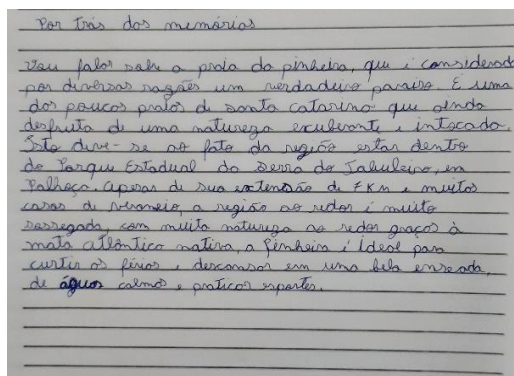 Por trás das memórias
Vou falar sobre a praia da pinheira, que é considerada
por diversas razões um verdadeiro paraíso. É uma
das poucas praias de santa catarina que ainda
desfruta de uma natureza exuberante e intocada.
Isto deve-se ao fato da região estar dentro
do Parque Estadual da Serra do Tabuleiro, em
Palhoça. Apesar de sua extensão de 7 Km e muitas
casas de veraneio, a região ao redor é muito
sossegada, com muita natureza ao redor graças à
mata atlântica nativa, a Pinheira é ideal para
curtir as férias e descansar em uma bela enseada,
de águas calmas e praticar esportes.